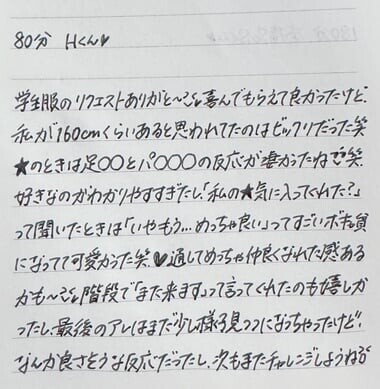 80分 Hくん♥
学生服のリクエストありがと〜♥喜んでもらえて良かったけど、
私が160cmくらいあると思われてたのはビックリだった笑
★のときは足〇〇とパ〇〇〇の反応が凄かったね笑
好きなのがわかりやすすぎたし「私の★気に入ってくれた?」
って聞いたときは「いやもう…めっちゃ良い」ってすごい
になってて可愛かった笑♥通してめっちゃ仲良くなれた感ある
かも〜階段で「また来ます」って言ってくれたのも嬉しか
ったし、最後のアレはまだ少し様子見つつになっちゃったけど、
なんか良さそうな反応だったし、次もまたチャレンジしようね